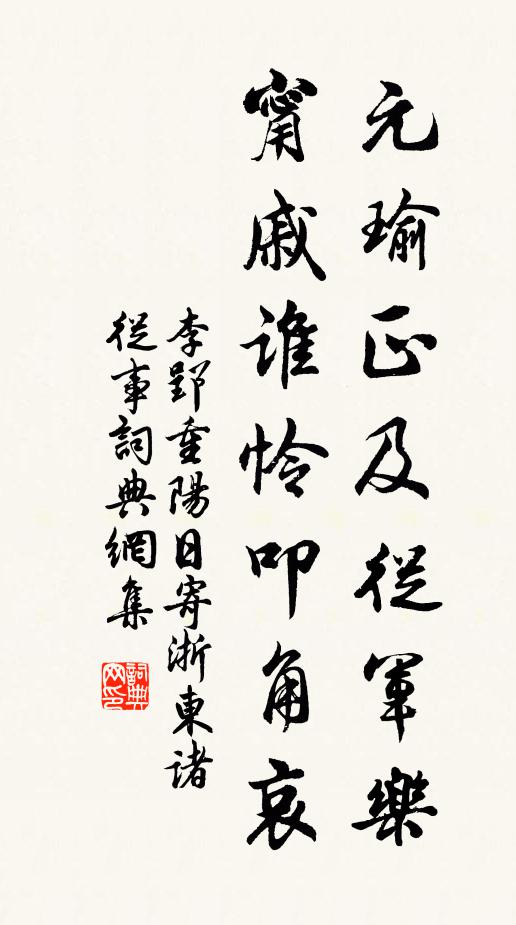 元瑜正及從軍樂
甯戚誰怜叩角哀
李郢重陽日寄浙東諸
從事詞典網集
詞典网印